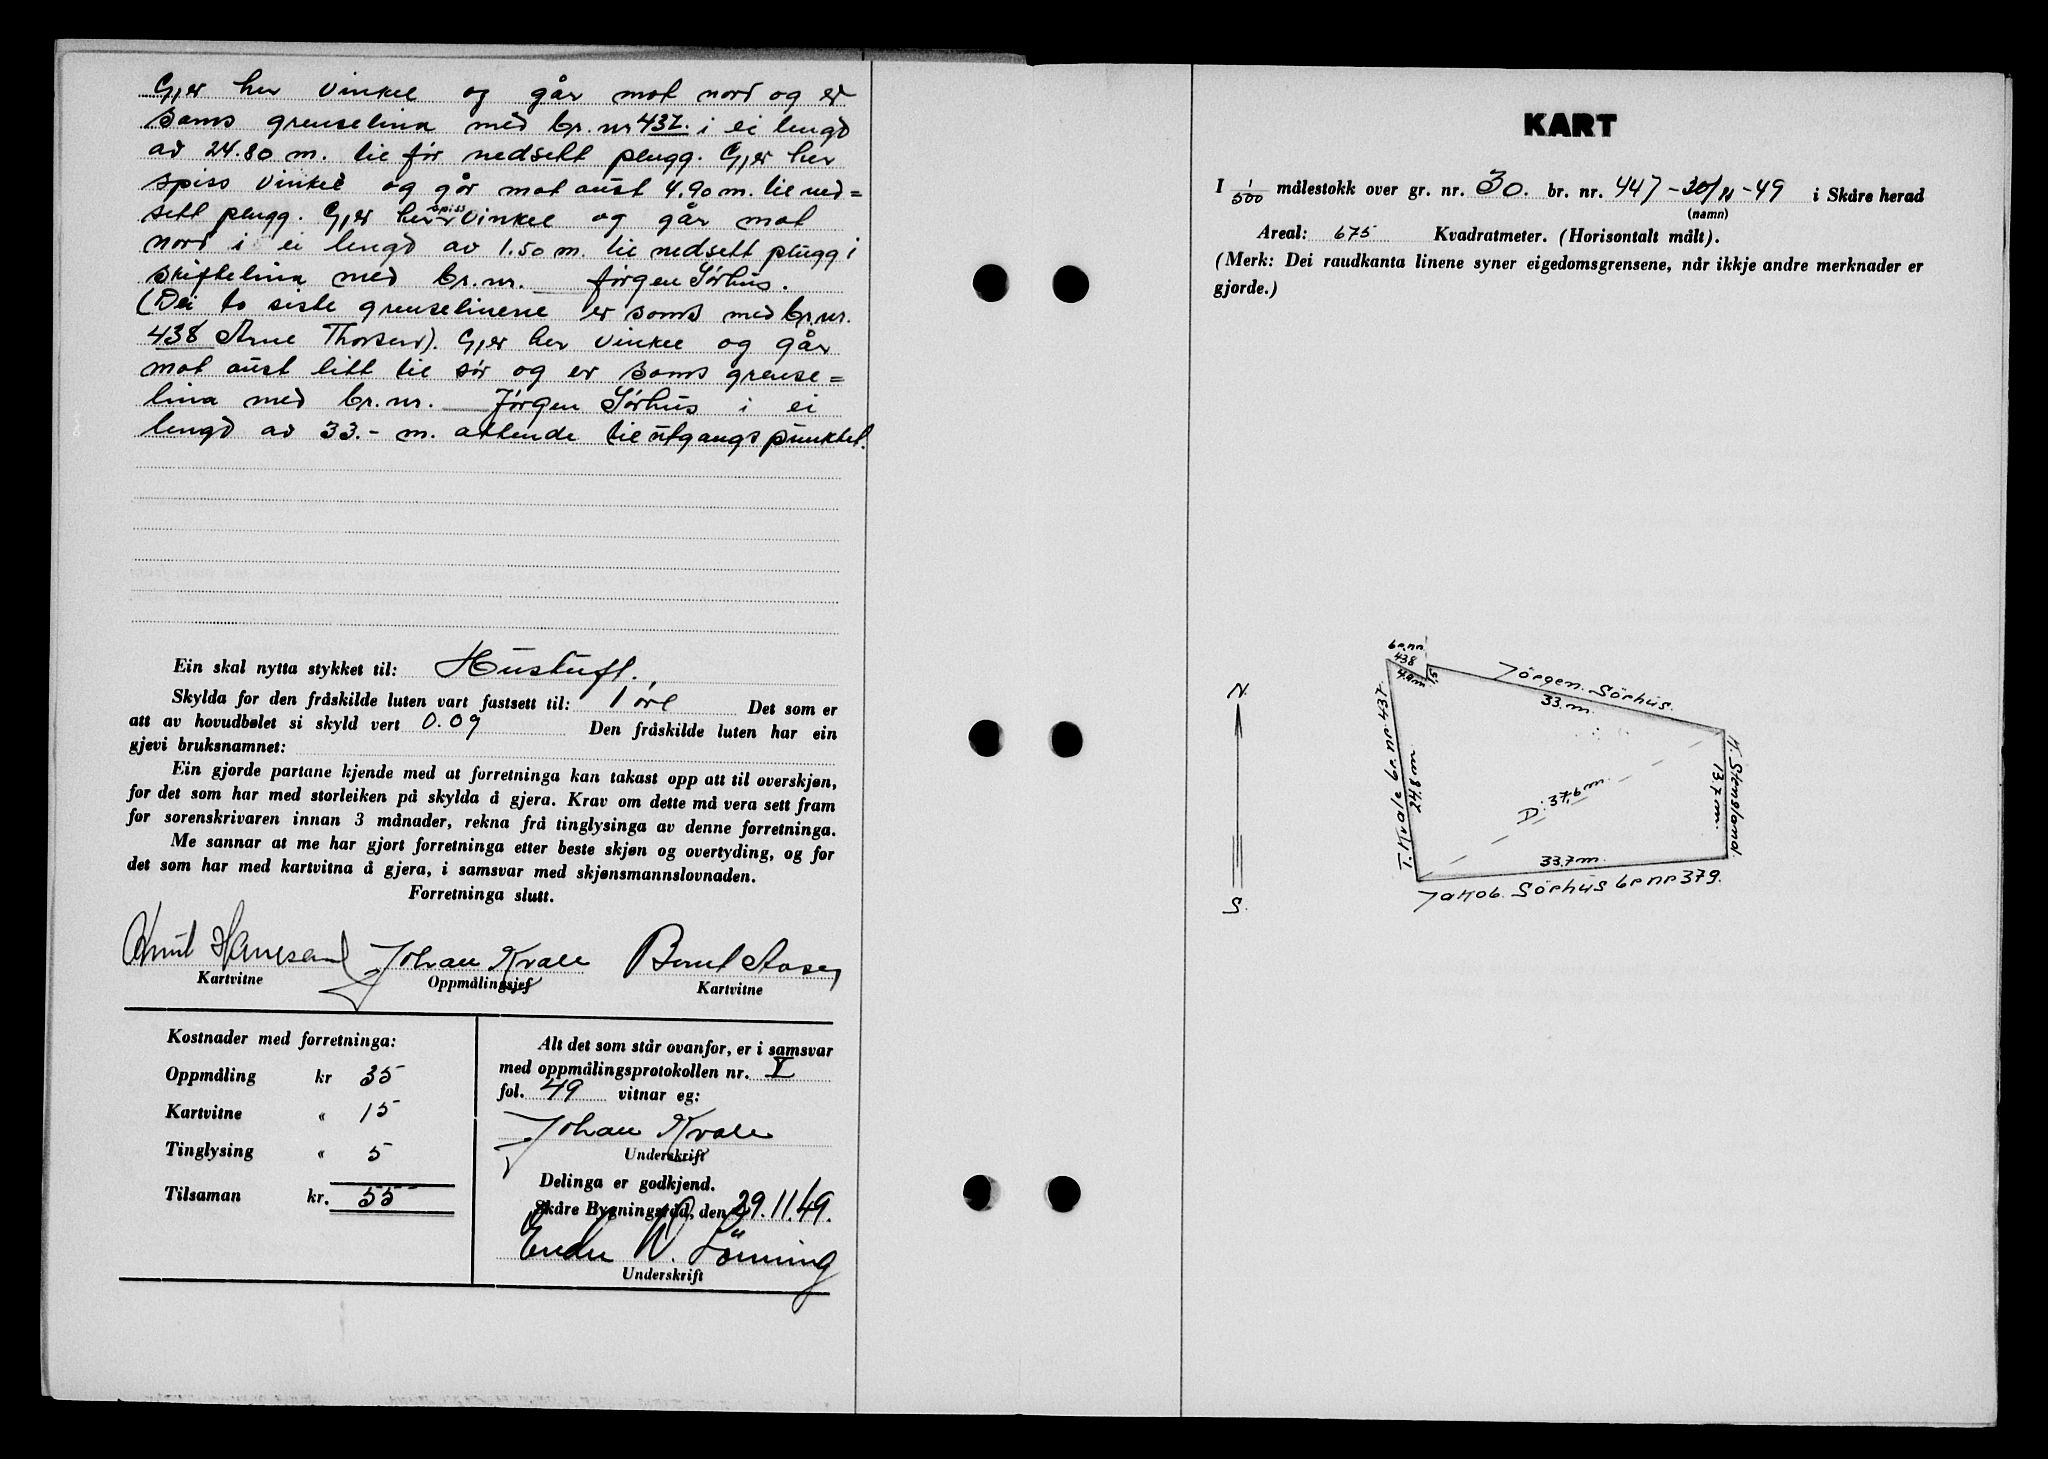 Gjer her vinkel og går mot nord og er
sams grenselina med br. nr 437. i ei lengd
av 24.80 m. til før nedsett plugg. Gjer her
spiss vinkel og går mot aust 4.90 m. til ned=
sett plugg. Gjer her spiss vinkel og går mot
nord i ei lengd av 1.50 m. til nedsett plugg i
skiftelina med br. nr. Jørgen Sørhus.
(Dei to siste grenselinene er sams med br. nr.
438 Arne Thorsen). Gjer her vinkel og går
mot aust litt til sør og er sams grense=
lina med br. nr. Jørgen Sørhus i ei
lengd av 33.- m. attende til utgangspunktet.
Ein skal nytta stykket til: Hustuft.
Skylda for den fråskilde luten vart fastsett til: 1 øre Det som er
att av hovudbølet si skyld vert 0.09 Den fråskilde luten har ein
gjevi bruksnamnet:
Ein gjorde partane kjende med at forretninga kan takast opp att til overskjøn,
for det som har med storleiken på skylda å gjera. Krav om dette må vera sett fram
for sorenskrivaren innan 3 månader, rekna frå tinglysinga av denne forretninga.
Me sannar at me har gjort forretninga etter beste skjøn og overtyding, og for
det som har med kartvitna å gjera, i samsvar med skjønsmannslovnaden.
Forretninga slutt.
Johan Kvale
Kartvitne Oppmålingsjef Kartvitne
Kostnader med forretninga:
Oppmåling kr 35
Kartvitne " 15
Tinglysing " 5
Tilsaman kr. 55
Alt det som står ovanfor, er i samsvar
med oppmålingsprotokollen nr. V
fol. 49 vitnar eg:
Johan Kvale
Underskrift
Delinga er godkjend.
Skåre Bygningsråd, den 29.11.49.
Endre W. Lönning
Underskrift
KART
I 1/500 målestokk over gr. nr. 30. br. nr. 447 - 30/11 - 49 i Skåre herad
(namn)
Areal: 675 Kvadratmeter. (Horisontalt målt).
(Merk: Dei raudkanta linene syner eigedomsgrensene, når ikkje andre merknader er
gjorde.)
N.
S.
br. nr.
438
4.9 m
1,5
Jörgen. Sörhüs.
33. m.
T. Kvale br. nr. 437.
24.8 m
D: 37,6 m.
K. Stensland.
13.7 m.
33.7 m.
Jakob. Sörhüs br nr 379.